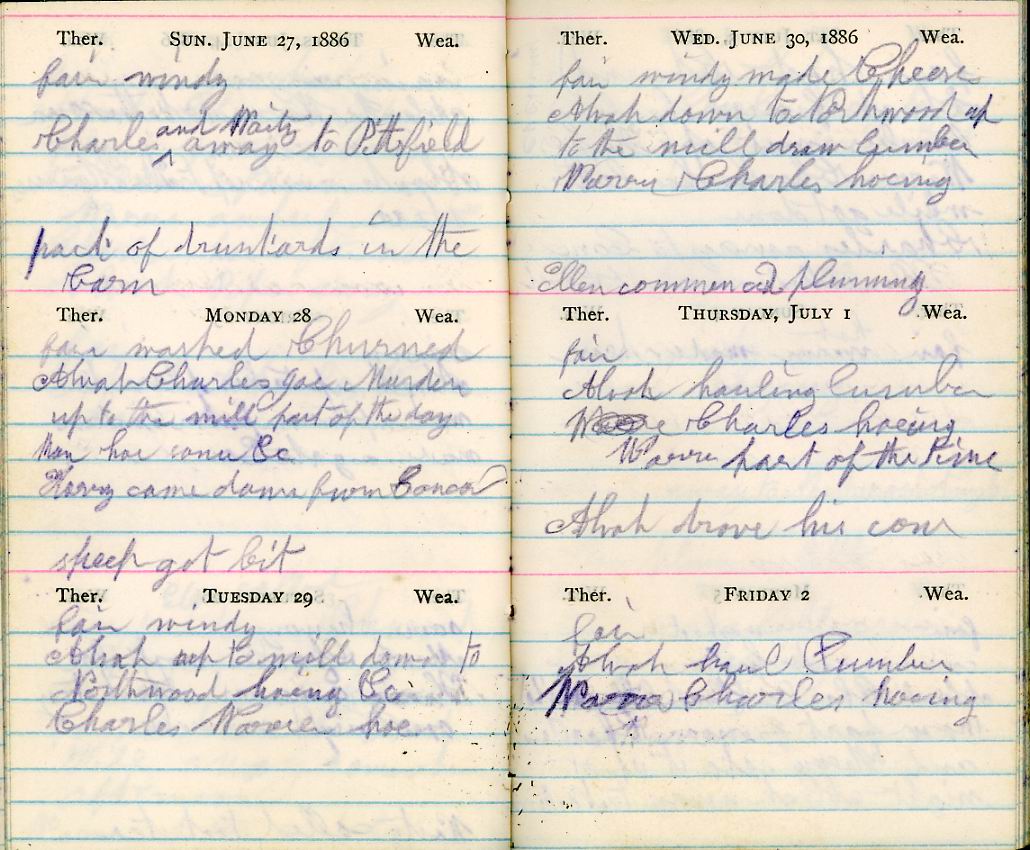 Ther. SUN. JUNE 27, 1886 Wea.
fair windy
and
Charles away to Pittsfield
pack of drunkards in the
barn
Ther. MONDAY 28 Wea.
fair washed Churned
Alvah Charles
up to the mill part of the day
hoe some &c
came down from Concord
sheep got bit
Ther. TUESDAY 29 Wea.
fair windy
Alvah up to mill down to
Northwood hoeing &c
Charles hoeing
Ther. WED. JUNE 30, 1886 Wea.
fair windy made Cheese
Alvah down to Northwood up
to the mill draw lumber
Charles hoeing
Ellen commenced plumming
Ther. THURSDAY, JULY 1 Wea.
fair
Alvah hauling lumber
Charles hoeing
part of the time
Alvah drove his cow
Ther. FRIDAY 2 Wea.
fair
Alvah haul Lumber
Charles hoeing